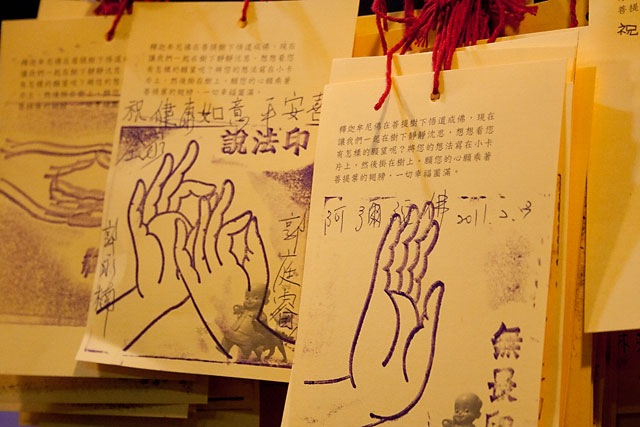 釋迦牟尼佛在菩提樹下悟道成佛，現在
讓我們一起在樹下靜靜沈思，想想看您
有怎樣的願望呢？將您的想法寫在小卡
片上，然後掛在樹上，願您的心願乘著
菩提葉的翅膀，一切幸福圓滿。
祝 健康如意 平安喜
說法印
釋迦牟尼佛在菩提樹下悟道成佛，現在
讓我們一起在樹下靜靜沈思，想想看您
有怎樣的願望呢？將您的想法寫在小卡
片上，然後掛在樹上，願您的心願乘著
菩提葉的翅膀，一切幸福圓滿。
阿彌陀佛 2011.2.3
無畏印
祝